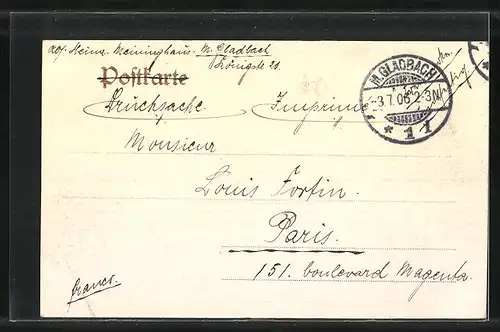 Heinr. Meininghaus. M. Gladbach
Königstr. 21
Postkarte
Drucksache Imprimé
M. GLADBACH
3.7.06. 2-3N
* 1 1
Monsieur
Louis Fortin.
Paris.
151. boulevard Magenta.
france.